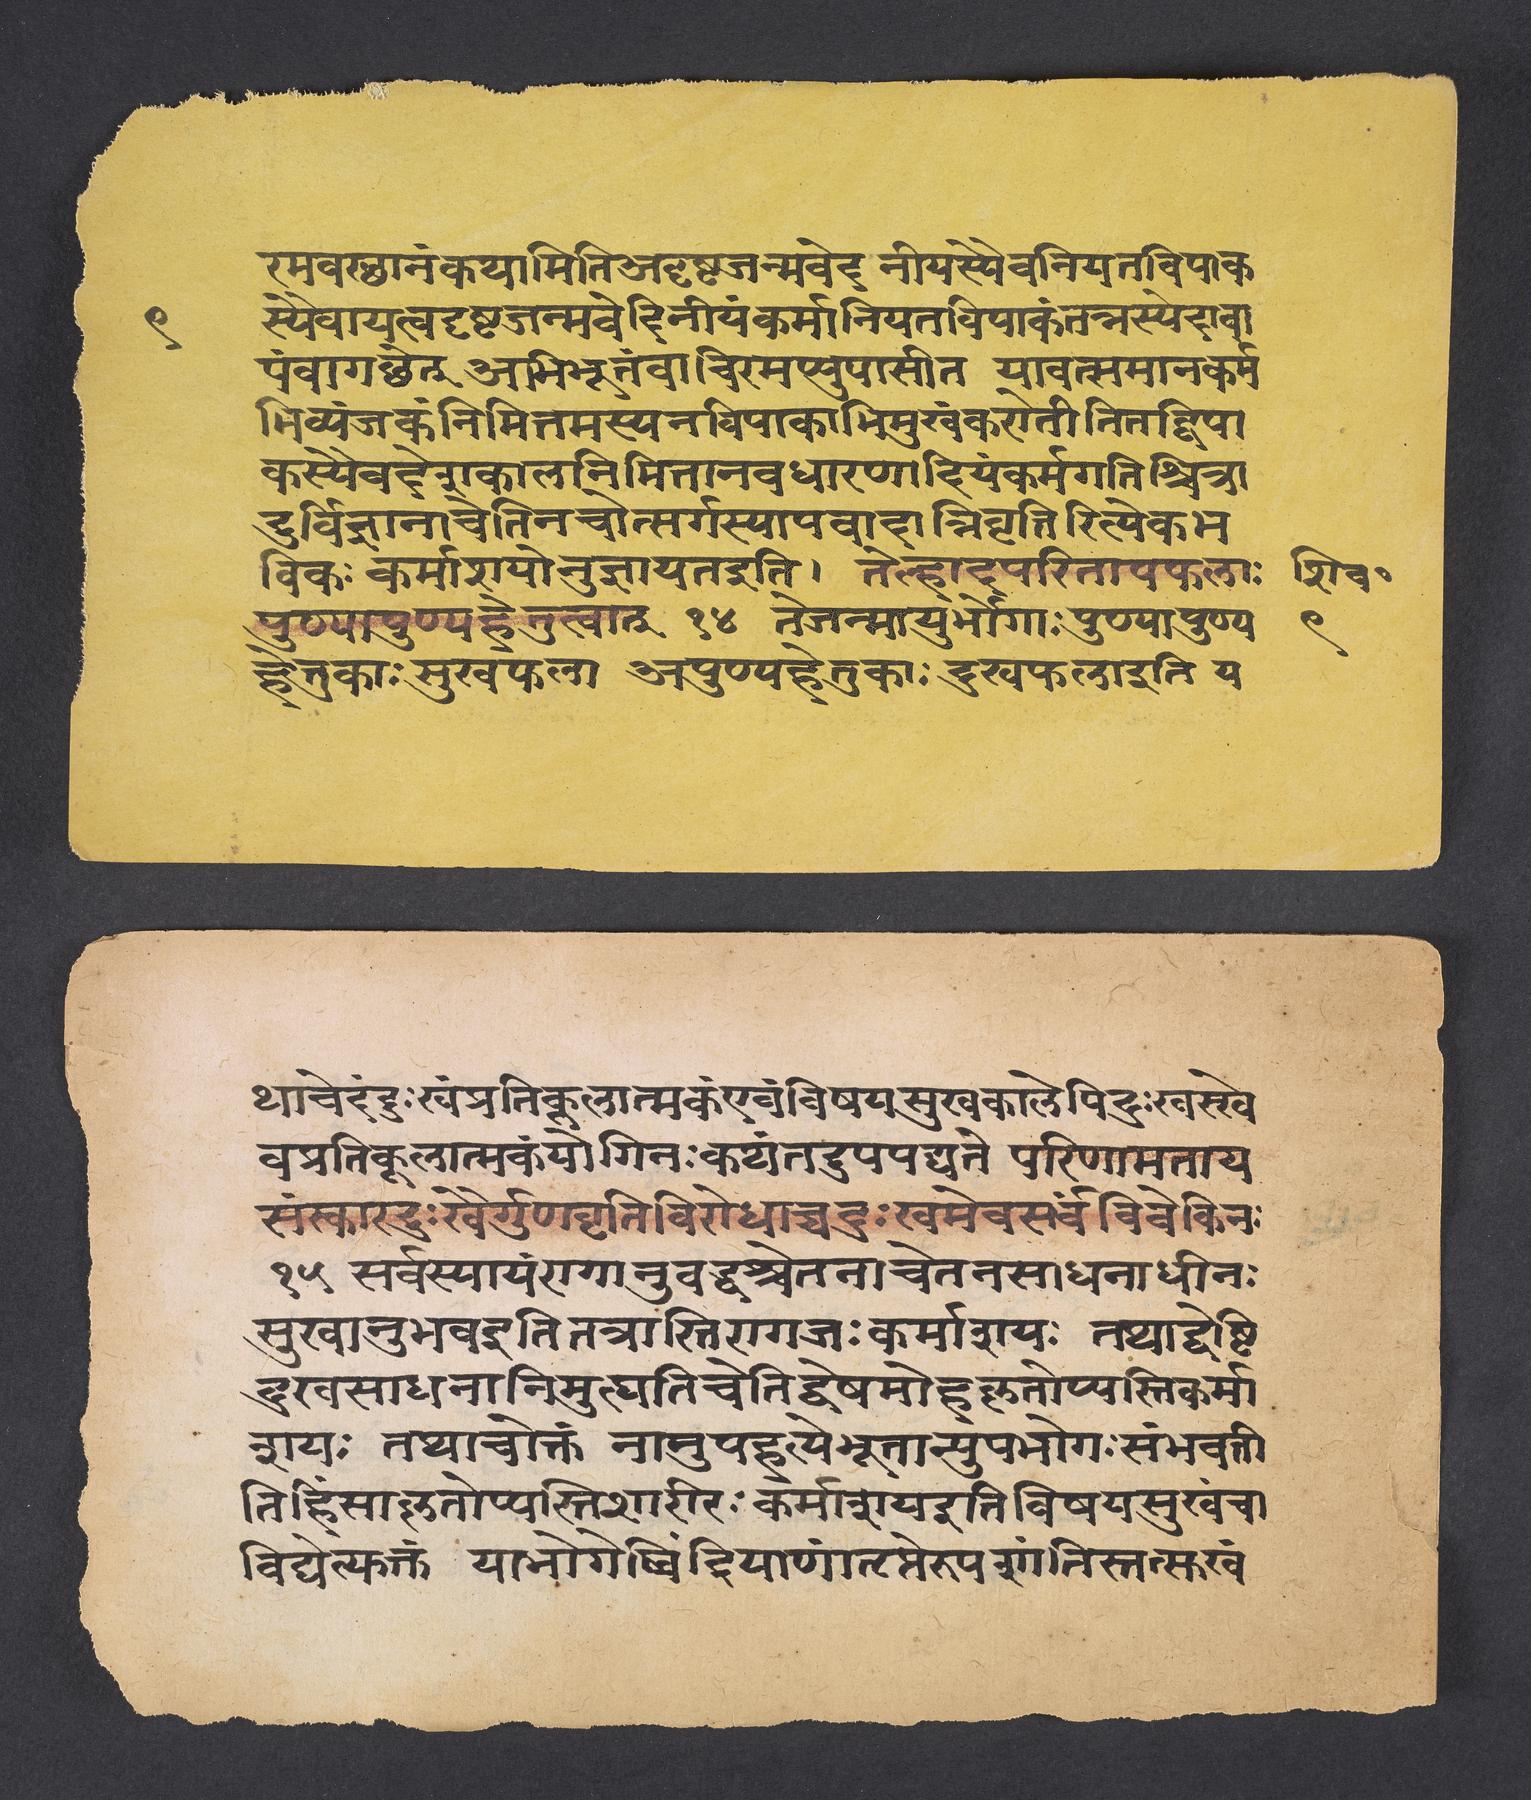 रमवस्छानंकथामितिअदृष्टजन्मवेद नीयस्यैवनियतविपाक
९
स्यैवायत्वदृष्टजन्मवेदिनीयंकर्मानियतविपाकंतन्नस्येद्दावा
पंवागछेत् अभिभूतंवाचिरमप्युपासीत यावत्समानकर्म
भिव्यंजकंनिमित्तमस्यनविपाकाभिमुखंकरोतीतितद्विपा
कस्यैवद्देशकालनिमित्तानवधारणाद्दियंकर्मगतिश्चित्रा
दुर्विज्ञानाचेतिनचोत्सर्गस्यापवादान्निवृत्तिरित्येकभ
विकः कर्माशयोनुज्ञायतइति। तेल्हादपरितापफलाः
शिव॰
पुण्यापुण्यहेतुत्वात् १४ तेजन्मायुर्भोगाःपुण्यापुण्य
९
हेतुकाःसुखफला अपुण्यहेतुकाः दुखफलाइति य
थाचेदंदुःखंप्रतिकूलात्मकंएवंविषयसुखकालेपिदुःखस्त्वे
वप्रतिकूलात्मकंयोगिनःकथंतदुपपद्यते परिणामताय
संस्कारदुःखैर्गुणवृतिविरोधाच्चदुःखमेवसर्वंविवेकिनः
१५ सर्वस्यायंरागानुवद्धश्चेतनाचेतनसाधनाधीनः
सुखानुभवइतितत्रास्तिरागजः कर्माशयः तथाद्वेष्टि
दुखसाधनानिमुत्घतिचेतिद्वेषमोहकृतोप्यस्तिकर्मा
शयः तथाचोक्तं नानुपहत्येभूतान्युपभोगःसंभवती
तिहिंसाकृतोप्यस्तिशारीरः कर्माशयइतिविषयसुखंचा
विद्येत्यक्तं याभोगेष्विंद्रियाणांतृप्तेरुपशांतिस्तत्सखं